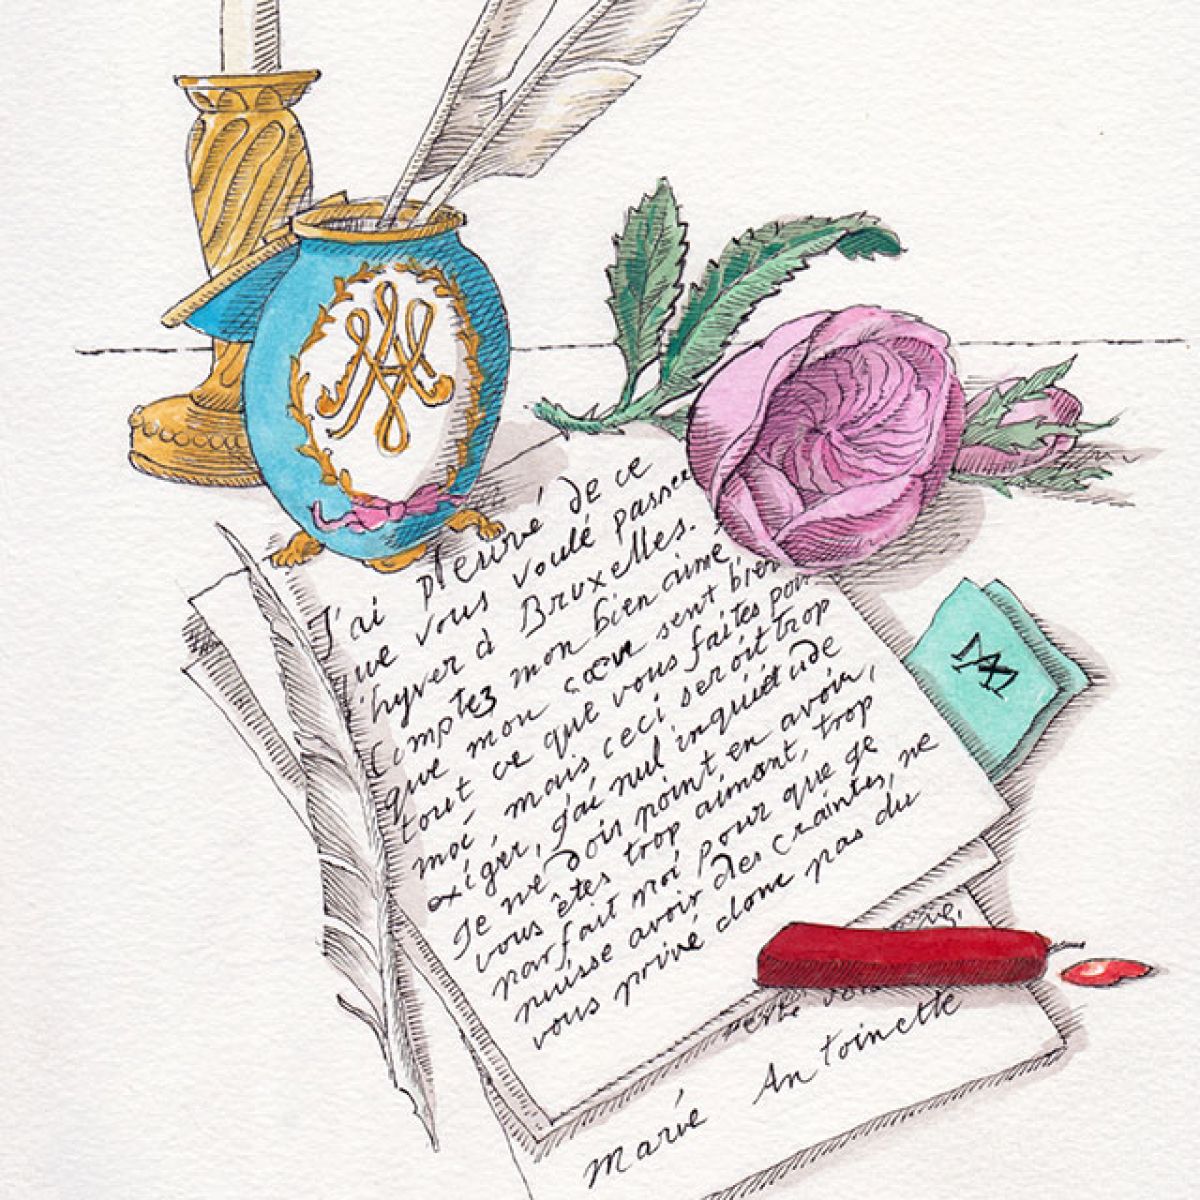 J'ai pleuré de ce
que vous voulé passer
l'hyver à Bruxelles.
Comptez mon bien aimé,
que mon cœur sent bien
tout ce que vous faites pour
moi, mais ceci seroit trop
exigér, j'ai nul inquiétude
Je ne dois point en avoir,
vous êtes trop aimant, trop
parfait moi pour que je
puisse avoir des craintes, ne
vous privé donc pas du
Marié Antoinette
MA
MA